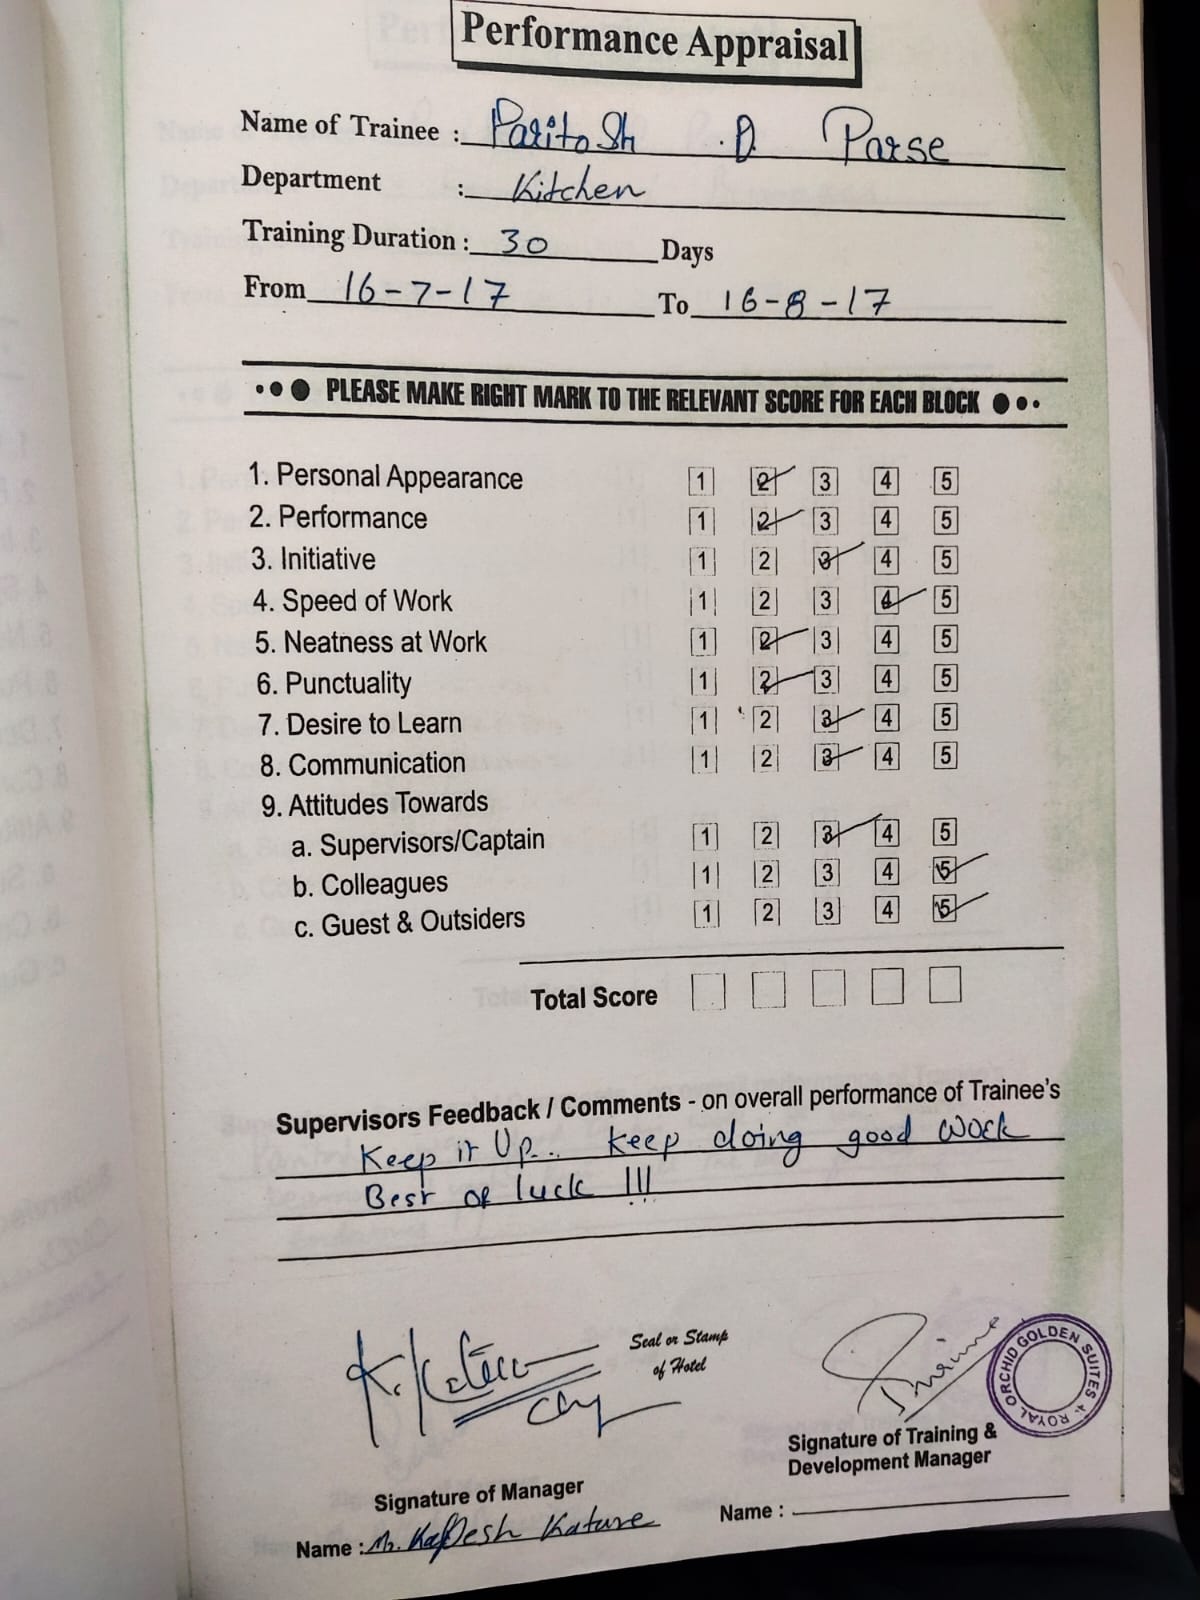 Performance Appraisal
Name of Trainee : Paritosh . D. Parse
Department : Kitchen
Training Duration : 30 Days
From 16-7-17 To 16-8-17
PLEASE MAKE RIGHT MARK TO THE RELEVANT SCORE FOR EACH BLOCK
1. Personal Appearance 1 2 3 4 5
2. Performance 1 2 3 4 5
3. Initiative 1 2 3 4 5
4. Speed of Work 1 2 3 4 5
5. Neatness at Work 1 2 3 4 5
6. Punctuality 1 2 3 4 5
7. Desire to Learn 1 2 3 4 5
8. Communication 1 2 3 4 5
9. Attitudes Towards
a. Supervisors/Captain 1 2 3 4 5
b. Colleagues 1 2 3 4 5
c. Guest & Outsiders 1 2 3 4 5
Total Score
Supervisors Feedback / Comments - on overall performance of Trainee's
Keep it Up... keep doing good work
Best of luck !!!
Seal or Stamp
of Hotel
ROYAL ORCHID GOLDEN SUITES
Signature of Training &
Development Manager
Signature of Manager
Name :
Name : Mr. Kature